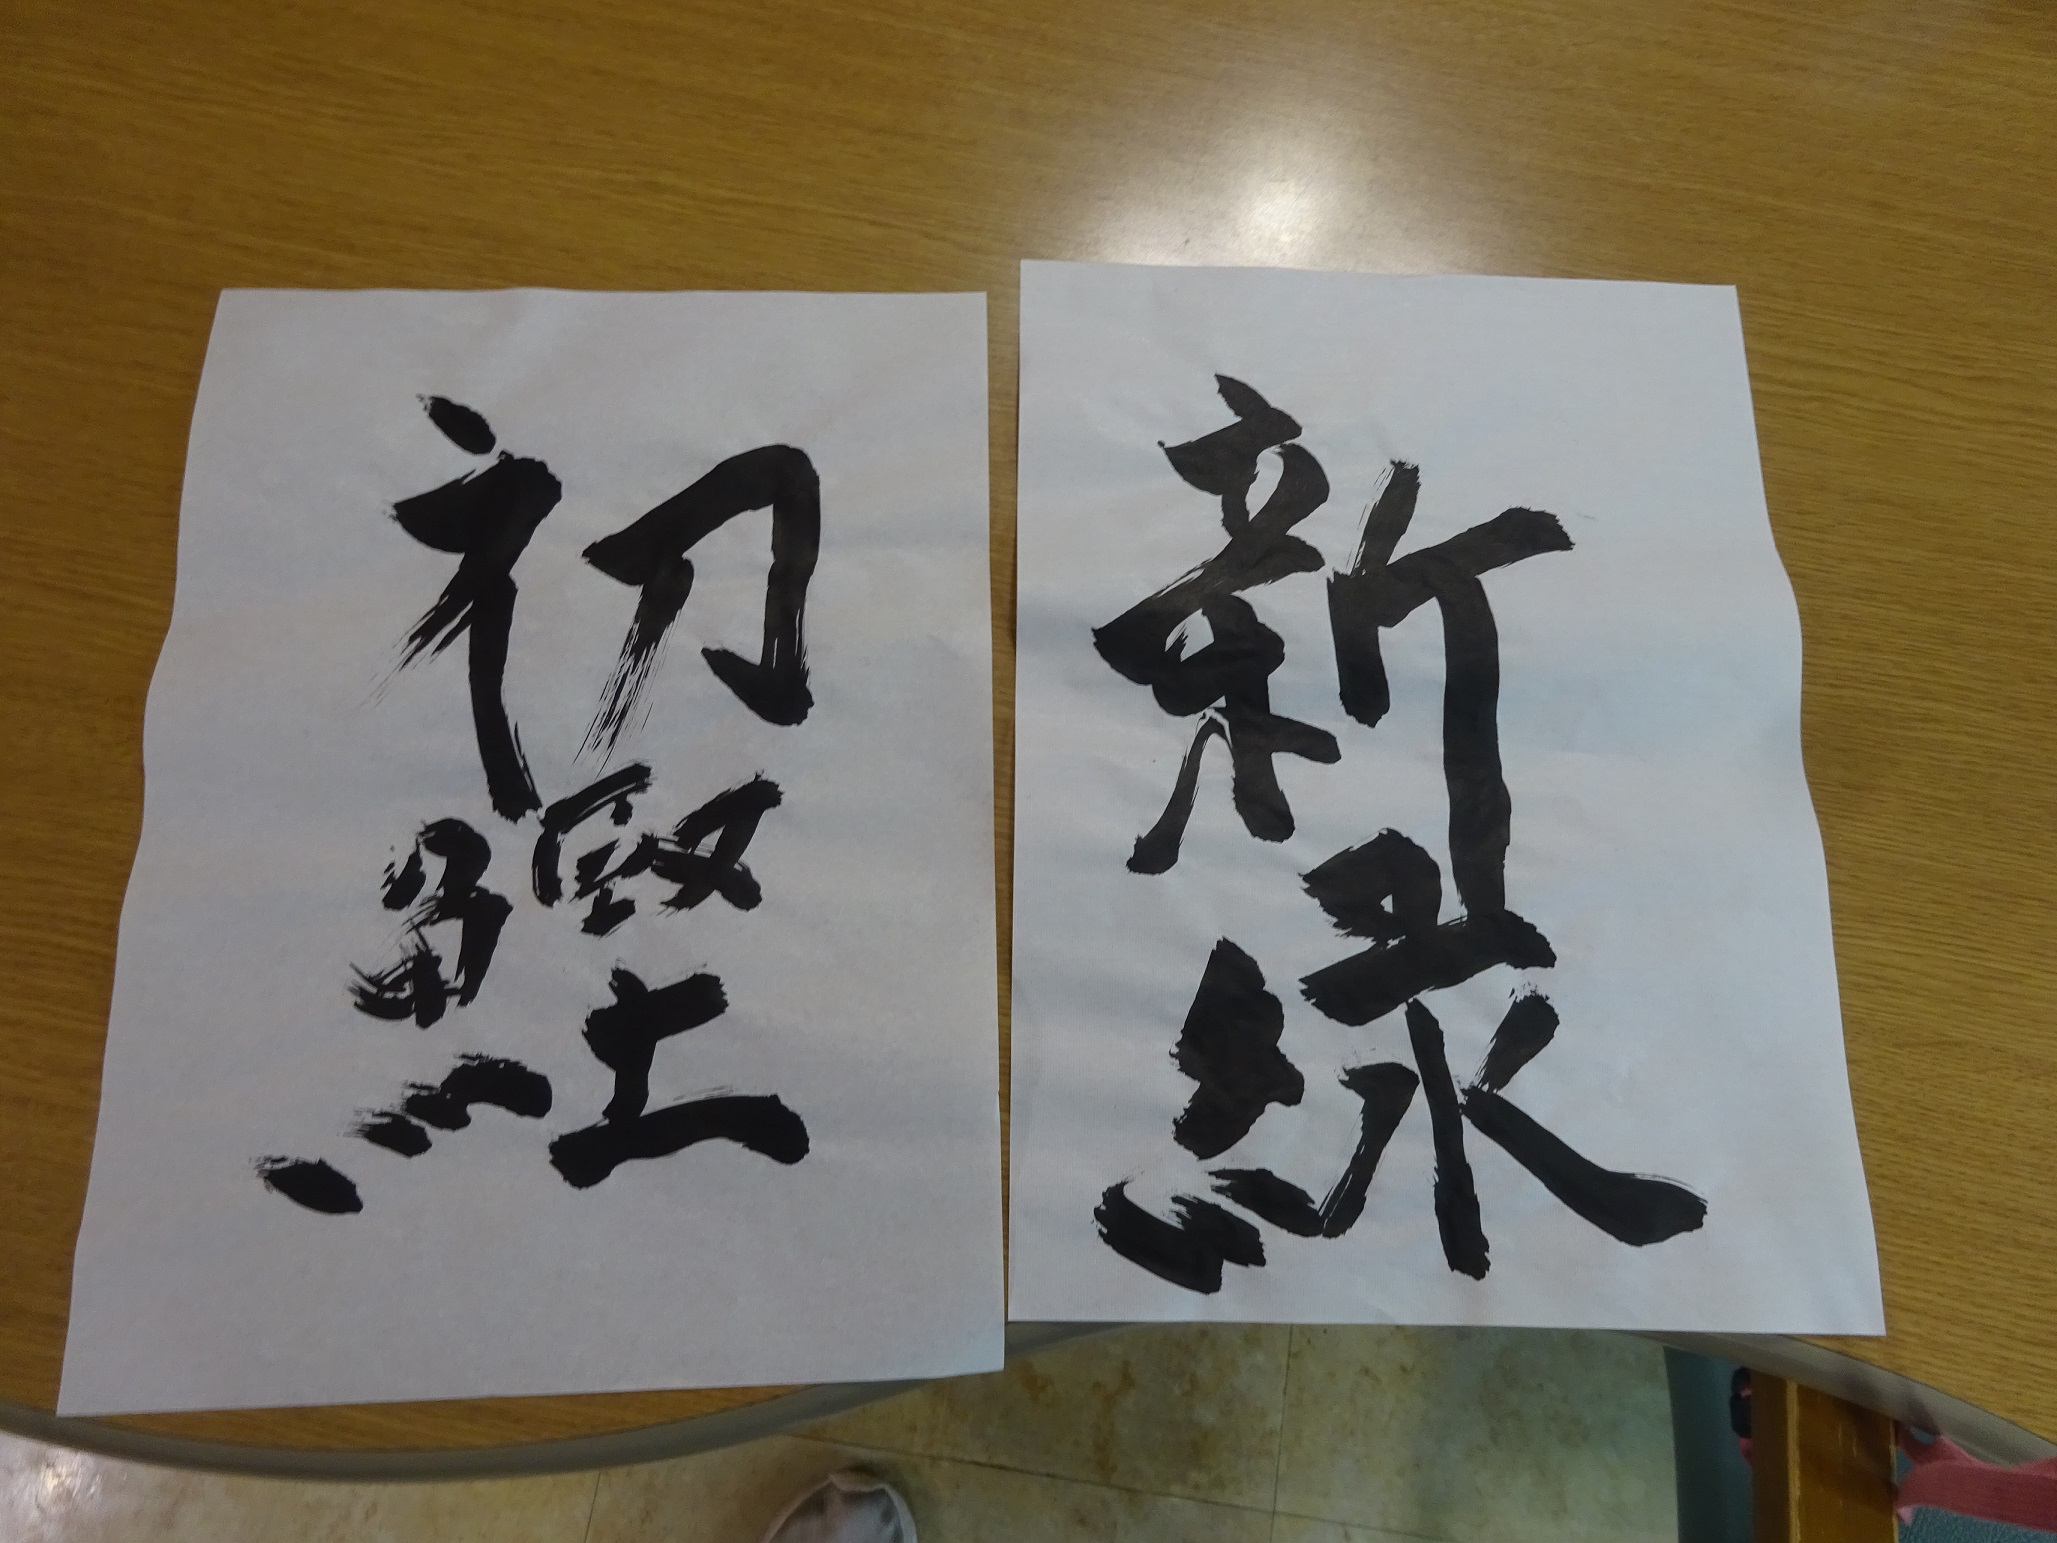 新緑
初鰹